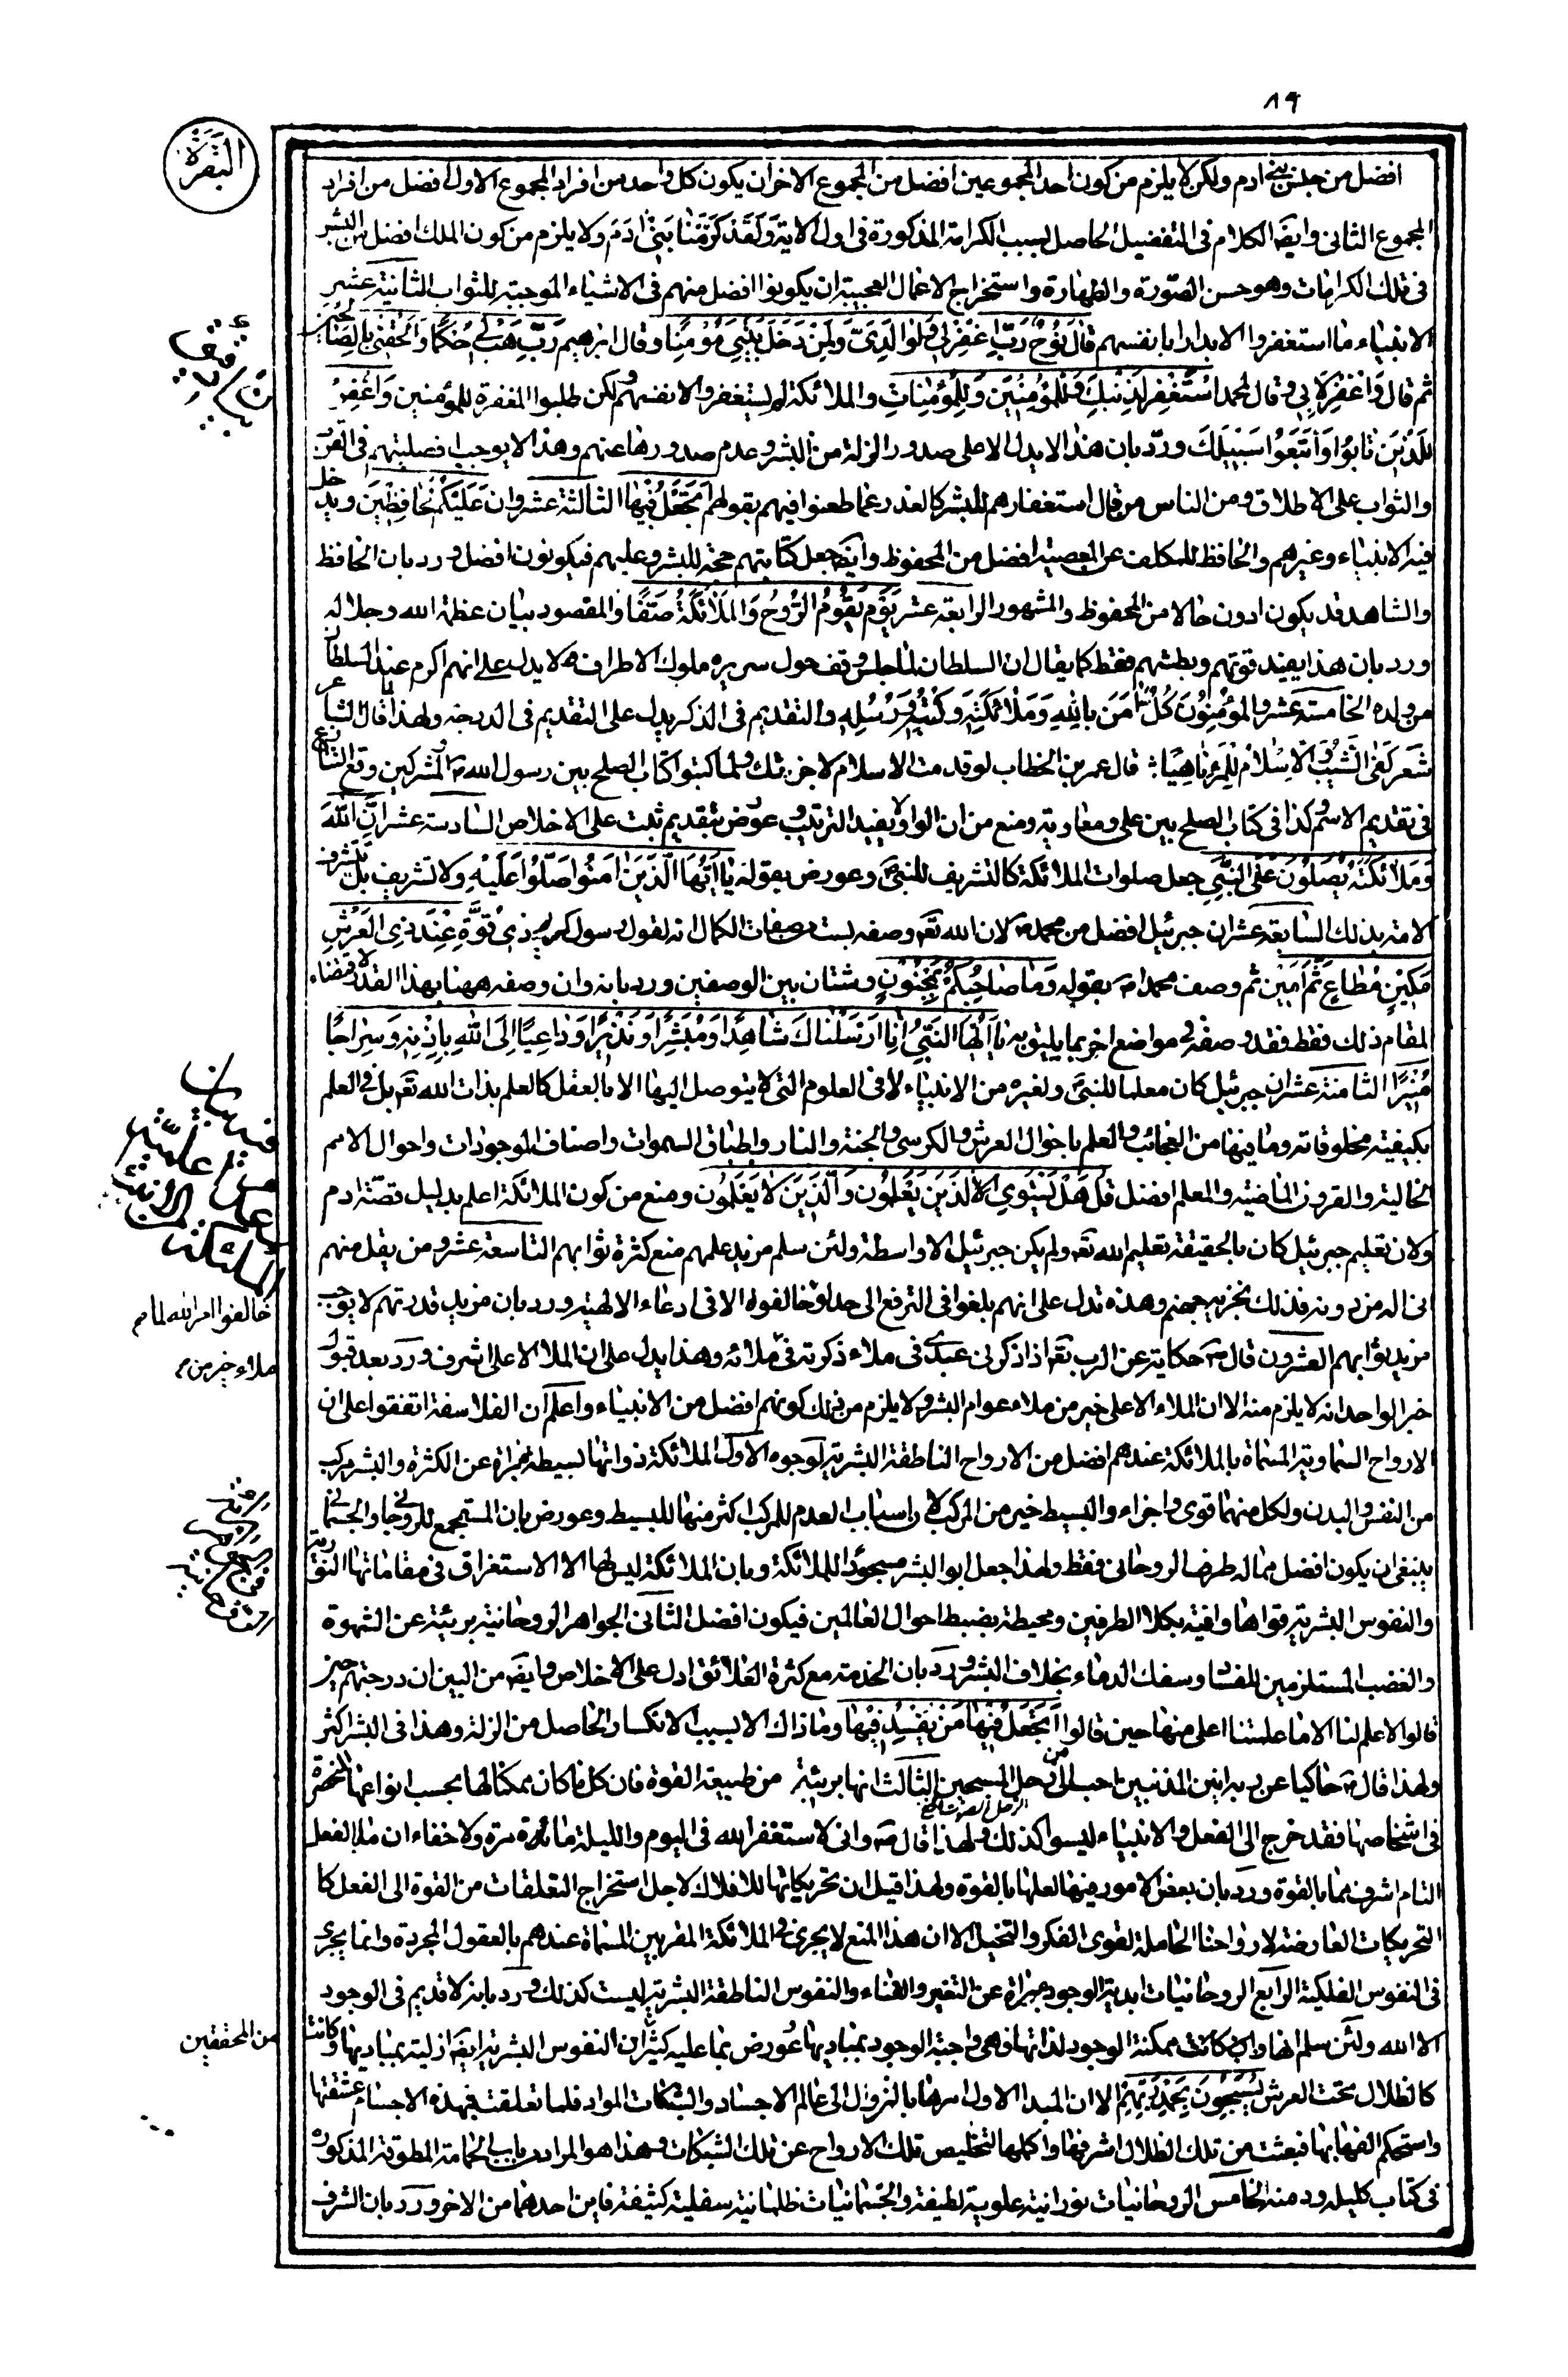 ٨٩
البقرة
افضل من جنس بنى ادم ولكن لا يلزم من كون احد المجموعين افضل من المجموع الاخر ان يكون كل واحد من افراد المجموع الاول افضل من افراد
المجموع الثانى وايضا الكلام فى التفضيل الحاصل بسبب الكرامة المذكورة فى اول الاية وَلَقَدْ كَرَّمْنَا بَنِى ادَمَ ولا يلزم من كون الملك افضل من البشر
فى تلك الكرامات وهو حسن الصورة والطهارة واستخراج الاعمال العجيبة ان يكونوا افضل منهم فى الاشياء الموجبة للثواب الثانية عشر
الانبياء ما استغفروا الا بدأوا بانفسهم قَالَ نُوحٌ رَبِّ اغْفِرْ لِى وَلِوَالِدَىَّ وَلِمَنْ دَخَلَ بَيْتِىَ مُؤْمِنًا وقال ابرهيم رَبِّ هَبْ لِى حُكْمًا وَاَلْحِقْنِى بِالصَّالِحِينَ
ثم قال وَاغْفِرْ لِاَبِى وقال لمحمد اسْتَغْفِرْ لِذَنْبِكَ وَلِلْمُؤْمِنِينَ وَلِلْمُؤْمِنَاتِ والملائكة لم يستغفروا لانفسهم ولكن طلبوا المغفرة للمؤمنين وَاغْفِرْ
لِلَّذِينَ تَابُوا وَاتَّبَعُوا سَبِيلَكَ ورد بان هذا لا يدل الا على صدور الزلة من البشر وعدم صدورها عنهم وهذا لا يوجب افضليتهم فى القرب
والثواب على الاطلاق ومن الناس من قال استغفارهم للبشر كالعذر عما طعنوا فيهم بقولهم اَتَجْعَلُ فِيهَا الثالثة عشر وَاِنَّ عَلَيْكُمْ لَحَافِظِينَ ويدخل
فيه الانبياء وغيرهم والحافظ للمكلف عن المعصية افضل من المحفوظ وايضا جعل كتابتهم حجة للبشر وعليهم فيكونون افضل ورد بان الحافظ
والشاهد قد يكون ادون حالا من المحفوظ والمشهود الرابعة عشر يَوْمَ يَقُومُ الرُّوحُ وَالْمَلَائِكَةُ صَفًّا والمقصود بيان عظمة الله وجلاله
ورد بان هذا يفيد قوتهم وبطشهم فقط كما يقال ان السلطان لما جلس وقف حول سريره ملوك الاطراف فلا يدل على انهم اكرم عند السلطان
من ولده الخامسة عشر وَالْمُؤْمِنُونَ كُلٌّ امَنَ بِاللهِ وَمَلَائِكَتِهِ وَكُتُبِهِ وَرُسُلِهِ والتقديم فى الذكر يدل على التقديم فى الدرجة ولهذا لما قال الشاعر
شعر كَفَى الشَّيْبُ وَالْاِسْلَامُ لِلْمَرْءِ نَاهِيًا قال عمر بن الخطاب لو قدمت الاسلام لاجزتك ولما كتبوا كتاب الصلح بين رسول الله ص والمشركين وقع التنازع
فى تقديم الاسم وكذا فى كتاب الصلح بين على ومعاوية ومنع من ان الواو لا يفيد الترتيب وعورض بتقديم تبت على الاخلاص السادسة عشر اِنَّ اللهَ
وَمَلَائِكَتَهُ يُصَلُّونَ عَلَى النَّبِىِّ جعل صلوات الملائكة كالتشريف للنبى وعورض بقوله يَا اَيُّهَا الَّذِينَ امَنُوا صَلُّوا عَلَيْهِ ولا تشريف بل تتشرف
الامة بذلك السابعة عشر ان جبرئيل افضل من محمد ص لان الله تعالى وصفه بست من صفات الكمال انه لقول رسول كريم ذِى قُوَّةٍ عِنْدَ ذِى الْعَرْشِ
مَكِينٍ مُطَاعٍ ثَمَّ اَمِينٍ ثم وصف محمدا ص بقوله وَمَا صَاحِبُكُمْ بِمَجْنُونٍ وشتان بين الوصفين ورد بانه وان وصفه ههنا بهذا القدر لاقتضاء
المقام ذلك فقط فقد وصفه فى مواضع اخر بما يليق به يَا اَيُّهَا النَّبِىُّ اِنَّا اَرْسَلْنَاكَ شَاهِدًا وَمُبَشِّرًا وَنَذِيرًا وَدَاعِيًا اِلَى اللهِ بِاِذْنِهِ وَسِرَاجًا
مُنِيرًا الثامنة عشر ان جبرئيل كان معلما للنبى ولغيره من الانبياء لا فى العلوم التى لا يتوصل اليها الا بالعقل كالعلم بذات الله تعالى بل فى العلم
بكيفية مخلوقاته وما فيها من العجائب والعلم باحوال العرش والكرسى والجنة والنار واطباق السموات واصناف الموجودات واحوال الامم
الخالية والقرون الماضية والمعلم افضل قُلْ هَلْ يَسْتَوِى الَّذِينَ يَعْلَمُونَ وَالَّذِينَ لَا يَعْلَمُونَ ومنع من كون الملائكة اعلم بدليل قصة ادم
ولان تعليم جبرئيل كان بالحقيقة تعليم الله تعالى ولم يكن جبرئيل الا واسطة ولئن سلم مزيد علمهم منع كثرة ثوابهم التاسعة عشر ومن يقل منهم
انى اله من دونه فذلك نجزيه جهنم وهذه تدل على انهم بلغوا فى الترفع الى حد لو خالفوه الا فى ادعاء الالهية ورد بان مزيد قدرتهم لا يوجب
خالفوا امر الله لما م
مزيد ثوابهم العشرون قال ص حكاية عن الرب تعالى اذا ذكرنى عبدى فى ملاء ذكرته فى ملائه وهذا يدل على ان الملا الاعلى اشرف ورد بعد قبول
ملاء خير من م
خبر الواحد انه لا يلزم منه الا ان الملاء الاعلى خير من ملاء عوام البشر ولا يلزم من ذلك كونهم افضل من الانبياء واعلم ان الفلاسفة اتفقوا على ان
الارواح السماوية المسماة بالملائكة عندهم افضل من الارواح الناطقة البشرية لوجوه الاول الملائكة ذواتها بسيطة مبراة عن الكثرة والبشر مركب
من النفس والبدن ولكل منهما قوى واجزاء والبسيط خير من المركب لان اسباب العدم للمركب اكثر منها للبسيط وعورض بان المستجمع للروحانى والجسمانى
ينبغى ان يكون افضل مما له طرف الروحانى فقط ولهذا جعل ابو البشر مسجودا للملائكة وبان الملائكة ليس لها الا الاستغراق فى مقاماتها النورية
والنفوس البشرية قواها وافية بكلا الطرفين ومحيطة بضبط احوال العالمين فيكون افضل الثانى الجواهر الروحانية بريئة عن الشهوة
والغضب المستلزمين للفساد وسفك الدماء بخلاف البشر ورد بان الخدمة مع كثرة العلائق ادل على الاخلاص وايضا من البين ان درجتهم حين
قالوا لا علم لنا الا ما علمتنا اعلى منها حين قالوا اَتَجْعَلُ فِيهَا مَنْ يُفْسِدُ فِيهَا وما ذاك الا بسبب الانكسار الحاصل من الزلة وهذا فى البشر اكثر
ولهذا قال ص حاكيا عن ربه انين المذنبين احب الى من زجل المسبحين الثالث انها بريئة من طبيعة القوة فان كل ما كان ممكنا لها بحسب انواعها المنحصرة
فى اشخاصها فقد خرج الى الفعل والانبياء ليسوا كذلك ولهذا قال ص وانى لاستغفر الله فى اليوم والليلة مائة مرة ولا خفاء ان ما بالفعل
التام اشرف مما بالقوة ورد بان بعض الامور فيها لعلها بالقوة ولهذا قيل ان تحريكاتها للافلاك لاجل استخراج التعلقات من القوة الى الفعل كا
لتحريكات العارضة لارواحنا الحاملة لقوى الفكر والتخيل الا ان هذا المنع لا يجرى فى الملائكة المقربين المسماة عندهم بالعقول المجردة وانما يجرى
فى النفوس الفلكية الرابع الروحانيات ابدية الوجود مبراة عن التغير والفناء والنفوس الناطقة البشرية ليست كذلك ورد بانه لا قديم فى الوجود
الا الله ولئن سلم انها وان كانت ممكنة الوجود لذاتها فهى واجبة الوجود بمباديها عورض بما عليه كثير ان النفوس البشرية ايضا ازلية بمباديها وكانت
من المحققين
كالظلال تحت العرش يُسَبِّحُونَ بِحَمْدِ رَبِّهِمْ الا ان المبدا الاول امرها بالنزول الى عالم الاجساد والشبكات المواد فلما تعلقت بهذه الاجساء عشقتها
واستحكم الفها بها فبعثت من تلك الظلال اشرفها واكملها لتخليص تلك الارواح عن تلك الشبكات وهذا هو المراد بباب الحمامة المطوقة المذكورة
فى كتاب كليله ودمنه الخامس الروحانيات نورانية علوية لطيفة والجسمانيات ظلمانية سفلية كثيفة فاين احدهما من الاخر ورد بان الشرف